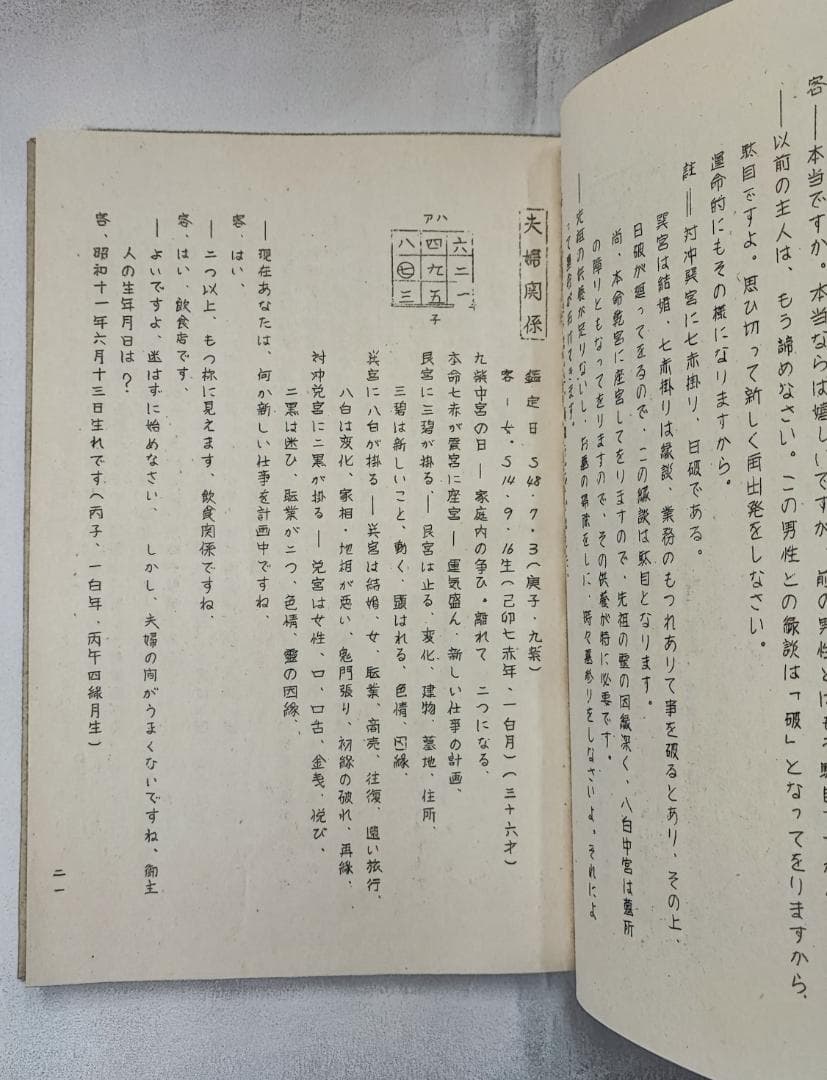 客――本当ですか。本当ならば嬉しいですが、前の男性とは
――以前の主人は、もう諦めなさい。この男性との縁談は「破」となってをりますから、
駄目ですよ。思ひ切って新しく再出発をしなさい。
運命的にもその様になりますから。
註＝対冲巽宮に七赤掛り、日破である。
巽宮は結婚、七赤掛りは縁談、業務のもつれありて事を破るとあり、その上、
日破が廻ってをるので、この縁談は駄目となります。
尚、本命乾宮に座宮してをりますので、先祖の霊の因縁深く、八白中宮は墓所
の障りともなってをりますので、その供養が特に必要です。
――先祖の供養が足りないし、お墓の掃除をしに、時々墓参りをしなさいよ。それによ
って運命が
夫婦関係
ハ
ア
六二一
四九五
八七三
子
鑑定日 S48・7・3(庚子・九紫)
客―女・S14・9・16生(己卯七赤年、一白月)(三十六才)
九紫中宮の日―家庭内の争ひ。離れて二つになる、
本命七赤が震宮に座宮―運気盛ん、新しい仕事の計画、
艮宮に三碧が掛る、―艮宮は止る、変化、建物、墓地、住所、
三碧は新しいこと、動く、顕はれる、色情、因縁、
巽宮に八白が掛る―巽宮は結婚、女、転業、商売、往復、遠い旅行、
八白は変化、家相・地相が悪い、鬼門張り、初縁の破れ、再縁、
対冲兌宮に二黒が掛る―兌宮は女性、口、口舌、金銭、悦び、
二黒は迷ひ、転業が二つ、色情、霊の因縁、
――現在あなたは、何か新しい仕事を計画中ですね、
客、はい、
――二つ以上、もつ様に見えます、飲食関係ですね、
客、はい、飲食店です、
――よいですよ、迷はずに始めなさい、しかし、夫婦の間がうまくないですね、御主
人の生年月日は？
客、昭和十一年六月十三日生れです(丙子、一白年、丙午四緑月生)
二一